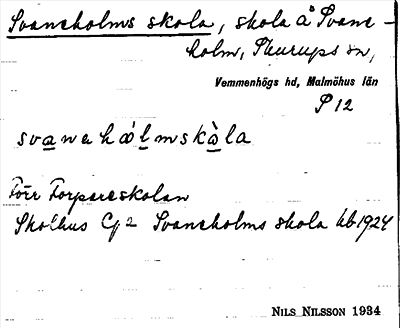 Svaneholms skola, skola å Svane-
holm, Skurups sn,
Vemmenhögs hd, Malmöhus län
P 12
svanehálmskàla
Förr Torpareskolan
Skolhus Cg 2 Svaneholms skola kb 1924
NILS NILSSON 1934